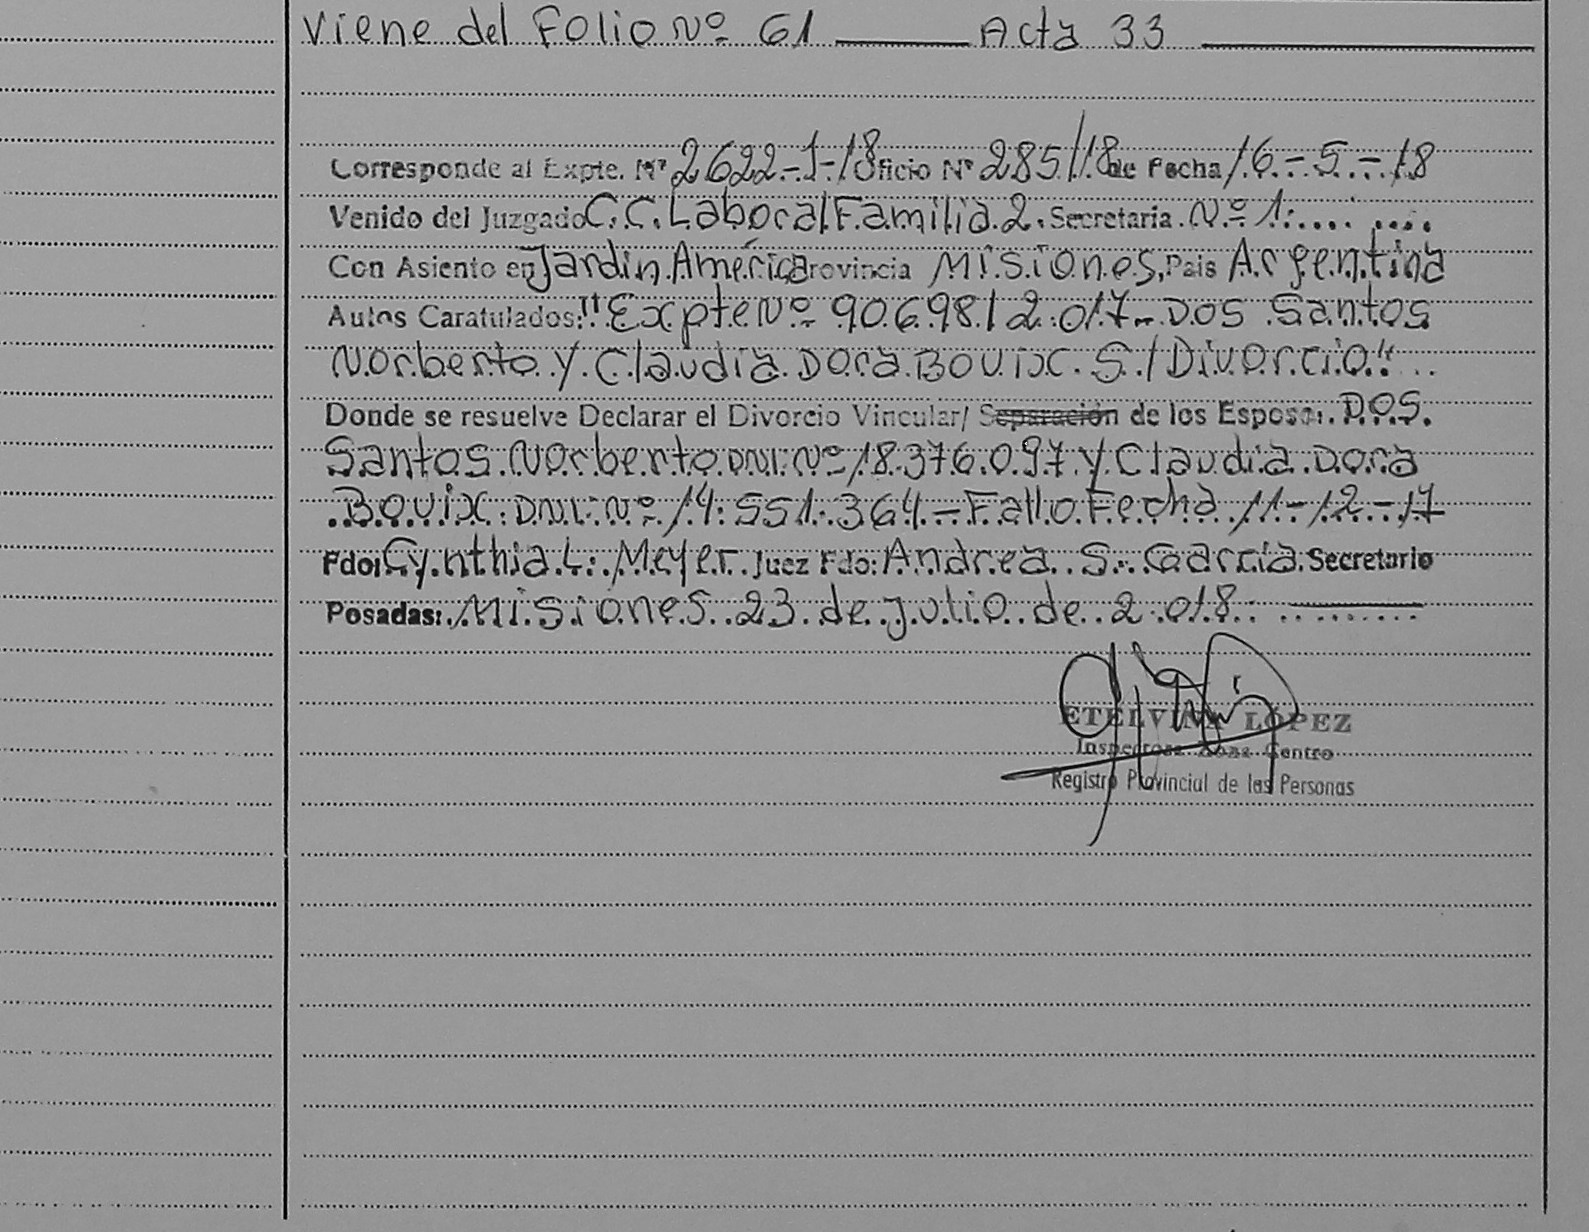 Viene del Folio Nº 61 Acta 33
Corresponde al Expte. Nº 2622-J-18 Oficio Nº 285/18 de Fecha 16-5-18
Venido del Juzgado C.C. Laboral Familia 2. Secretaria Nº 1
Con Asiento en Jardín América Provincia Misiones, Pais Argentina
Autos Caratulados: "Expte Nº 90698/2.017- Dos Santos
Norberto y Claudia Dora Bouix S/ Divorcio"
Donde se resuelve Declarar el Divorcio Vincular/ Separación de los Esposos: Dos
Santos Norberto DNI: Nº 18.376.097 y Claudia Dora
Bouix: DNI: Nº 14.551.364 - Fallo Fecha 11-12-17
Fdo: Cynthia L: Meyer Juez Fdo: Andrea S. García Secretario
Posadas: Misiones 23 de Julio de 2.018
ETELVINA LÓPEZ
Inspectora Zona Centro
Registro Provincial de las Personas